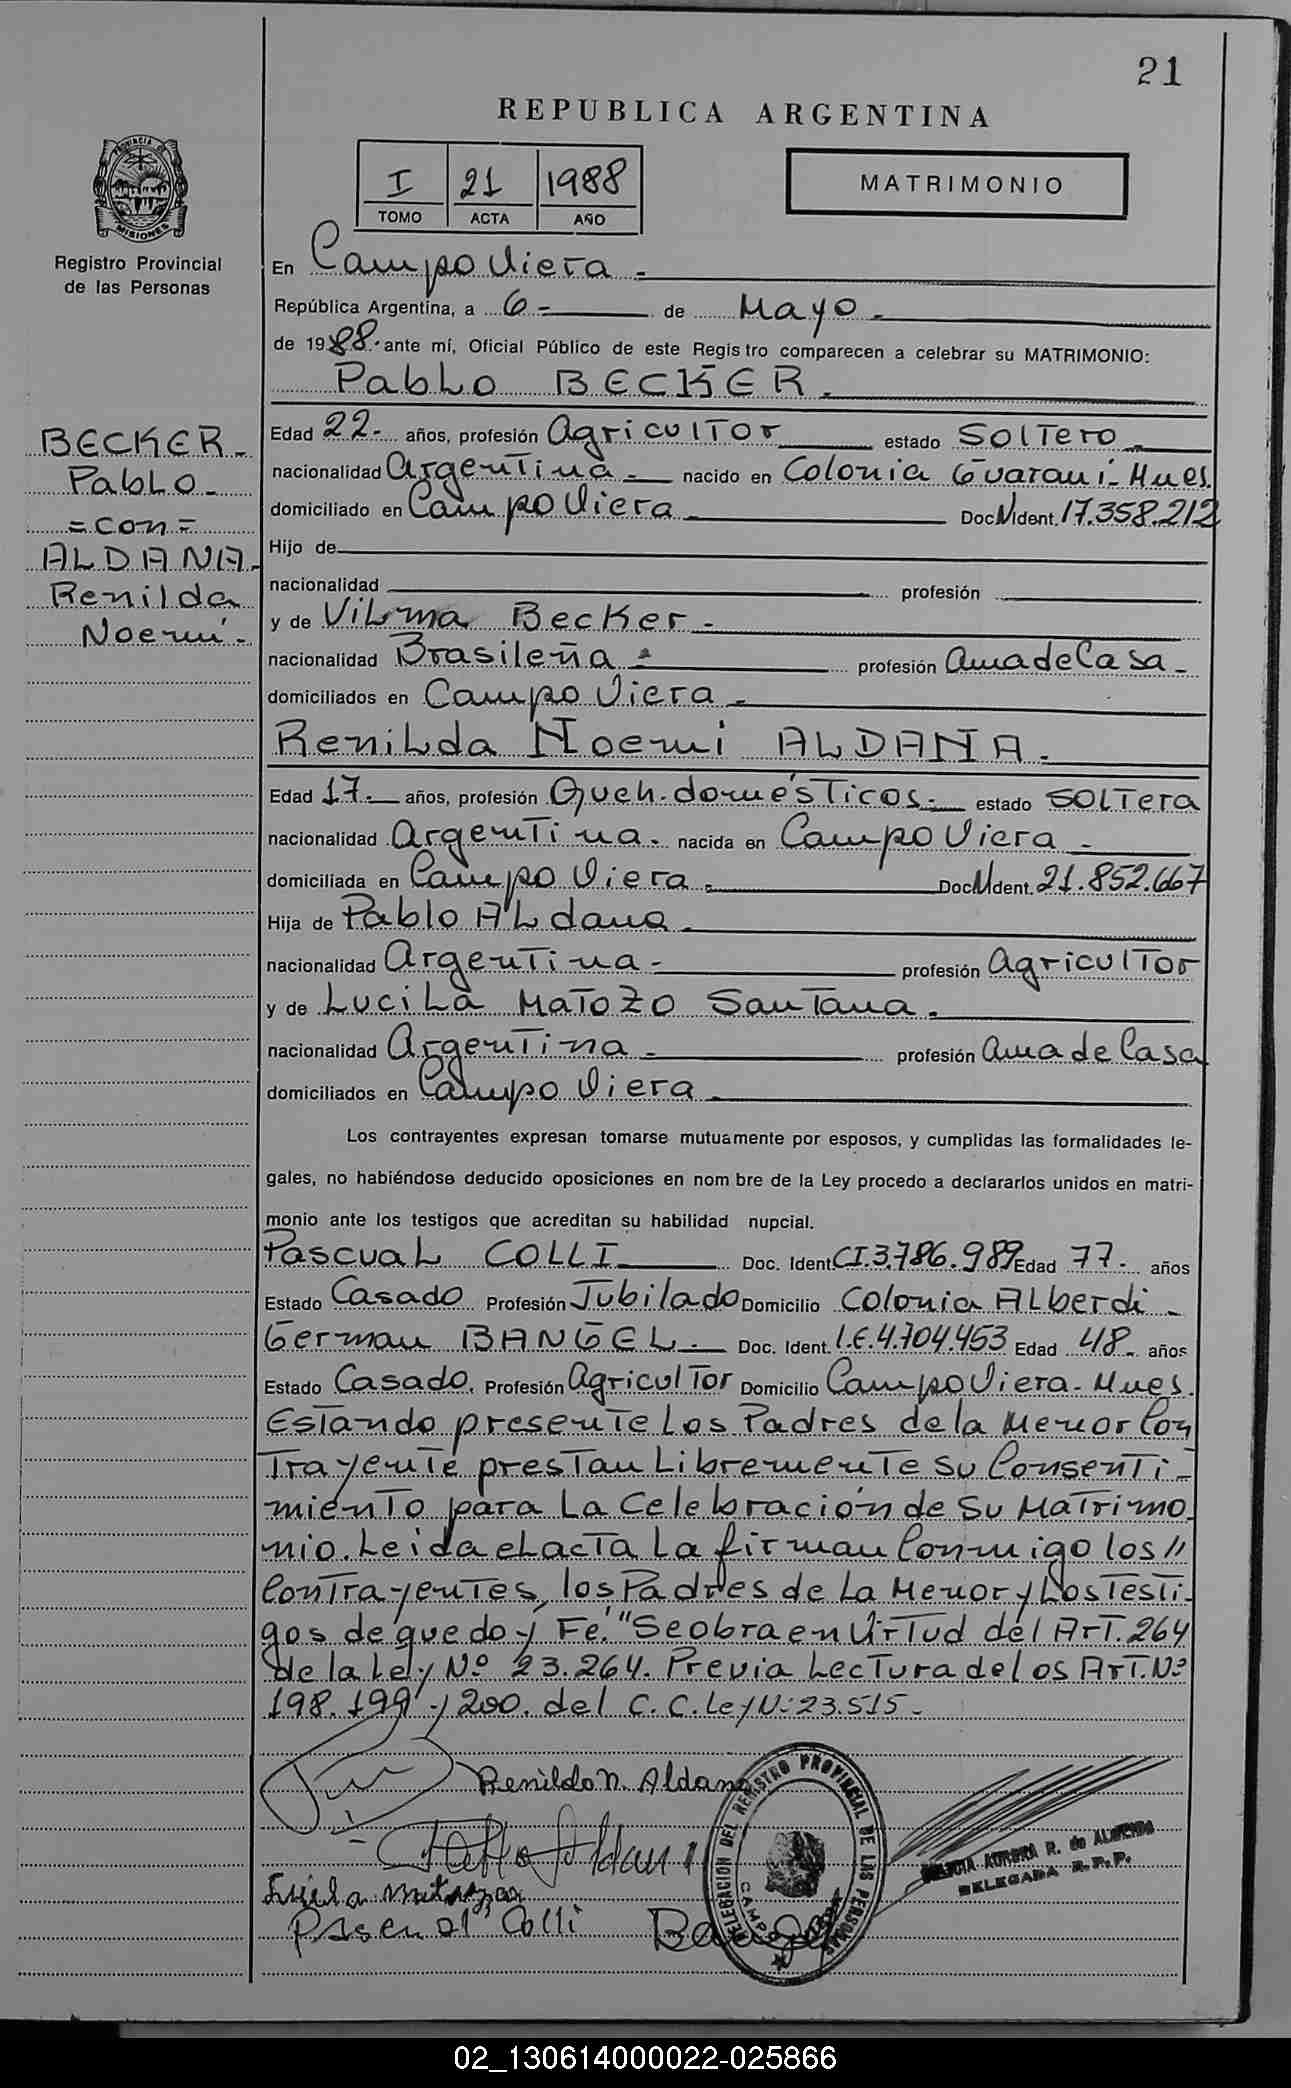 21
REPUBLICA ARGENTINA
PROVINCIA DE
MISIONES
Registro Provincial
de las Personas
I 21 1988
TOMO ACTA AÑO
MATRIMONIO
En Campo Viera.-
República Argentina, a 6- de Mayo.-
de 1988.- ante mí, Oficial Público de este Registro comparecen a celebrar su MATRIMONIO:
Pablo BECKER.
BECKER-
Pablo-
=con=
ALDANA-
Renilda
Noemí.-
Edad 22- años, profesión Agricultor estado Soltero-
nacionalidad Argentina- nacido en Colonia Guaraní-Mnes.
domiciliado en Campo Viera Doc N Ident. 17.358.212
Hijo de
nacionalidad profesión
y de Vilma Becker-
nacionalidad Brasileña- profesión ama de Casa-
domiciliados en Campo Viera-
Renilda Noemí ALDANA.
Edad 17- años, profesión Queh. domésticos- estado SOLTERA
nacionalidad Argentina. nacida en Campo Viera-
domiciliada en Campo Viera. Doc N Ident. 21.852.667
Hija de Pablo ALdana-
nacionalidad Argentina- profesión Agricultor
y de Lucila Matozo Santana.
nacionalidad Argentina- profesión ama de Casa
domiciliados en Campo Viera-
Los contrayentes expresan tomarse mutuamente por esposos, y cumplidas las formalidades le-
gales, no habiéndose deducido oposiciones en nom bre de la Ley procedo a declararlos unidos en matri-
monio ante los testigos que acreditan su habilidad nupcial.
Pascual COLLI Doc. Ident CI.3.786.989 Edad 77- años
Estado Casado Profesión Jubilado Domicilio Colonia ALberdi-
German BANGEL. Doc. Ident. L.E.4.704.453 Edad 48- años
Estado Casado. Profesión Agricultor Domicilio Campo Viera-Mnes.
Estando presente Los Padres de la Menor Con
Trayente prestan Libremente su Consenti-
miento para la Celebración de su Matrimo
nio. Leida el acta la firman Conmigo los //
Contrayentes, los Padres de La Menor y Los Testi-
gos de que doy Fe. "Se obra en Virtud del Art. 264
de la Ley Nº 23.264. Previa Lectura de los Art. Nº
198.199 y 200. del C.C. Ley Nº 23.515-
Renilda N. Aldana
Pablo Aldana
Pascual Colli
Bangel
DELEGACION DEL REGISTRO PROVINCIAL DE LAS PERSONAS
CAMPO VIERA
AURORA R. de ALMEIDA
DELEGADA R.P.P.
02_130614000022-025866